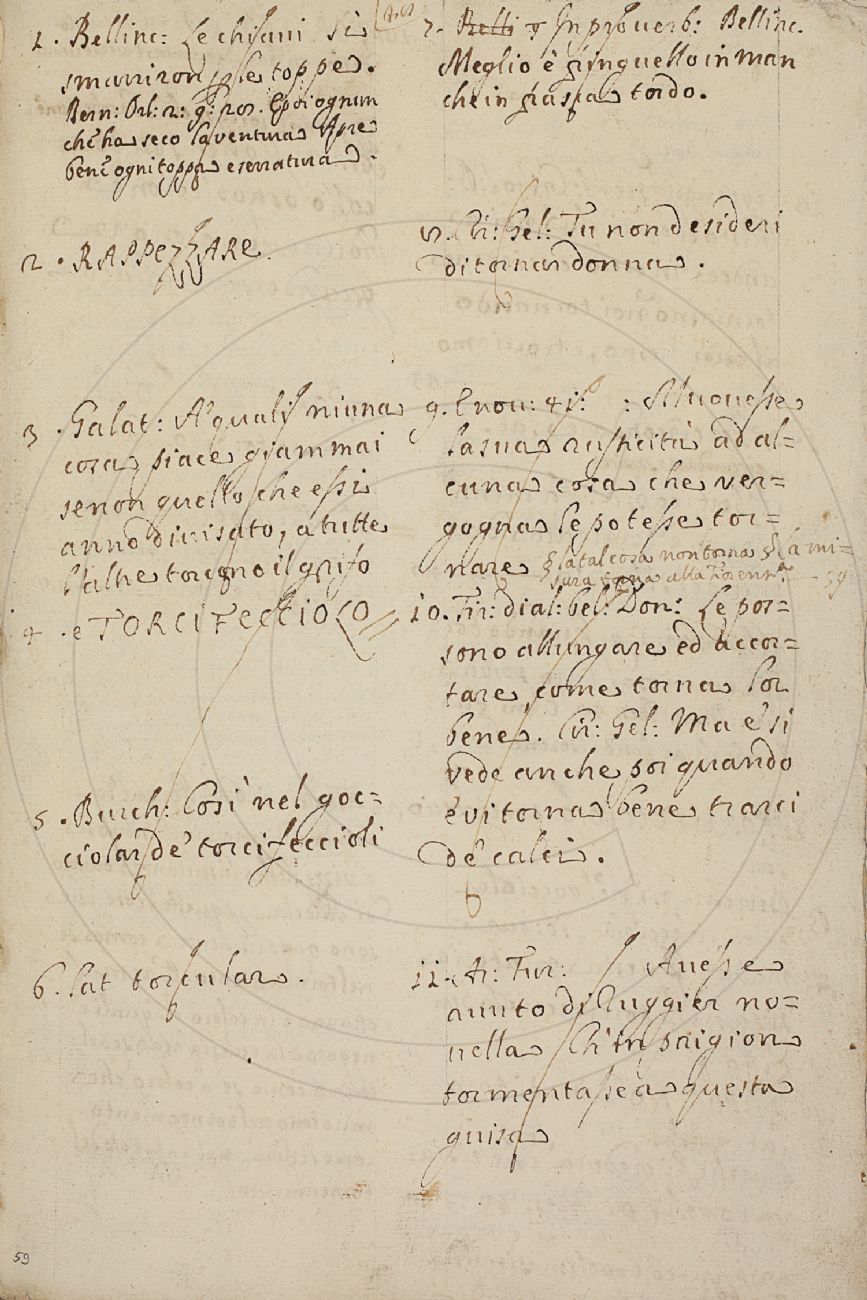 1. Bellinc: Le chiavi si
smarriron, e le toppe.
Bern: Orl: 2: 9: E poi ognun
che ha seco la ventura Apre
bene ogni toppa e serratura.
2. RAPPEZZARE.
3. Galat: A' quali niuna
cosa piace giammai
se non quello che essi
anno divisato, a tutte
l'altre torcono il grifo
4. e TORCIFECCIOLO
5. Burch: Così nel goc=
ciolar de' torcifeccioli
6. Lat torcular.
7. In proverb: Bellinc.
Meglio è fringuello in man
che in frasca tordo.
8. Cir: Gel: Tu non desideri
di tornar donna.
9. E nov: 41: : Rimovesse
la sua rusticità ad al=
cuna cosa che ver=
gogna le potesse tor=
nare la tal cosa non torna la mi=
sura torna alla
10. Fir: dial: bel: Don: Le pos=
sono allungare ed accor=
tare, come torna lor
bene. Cir: Gel: Ma e' si
vede anche poi quando
e' vi torna bene trarci
de' calci.
11. Ar: Fur: Avesse
avuto di Ruggier no=
vella Ch'in prigion
tormentasse a questa
guisa
59